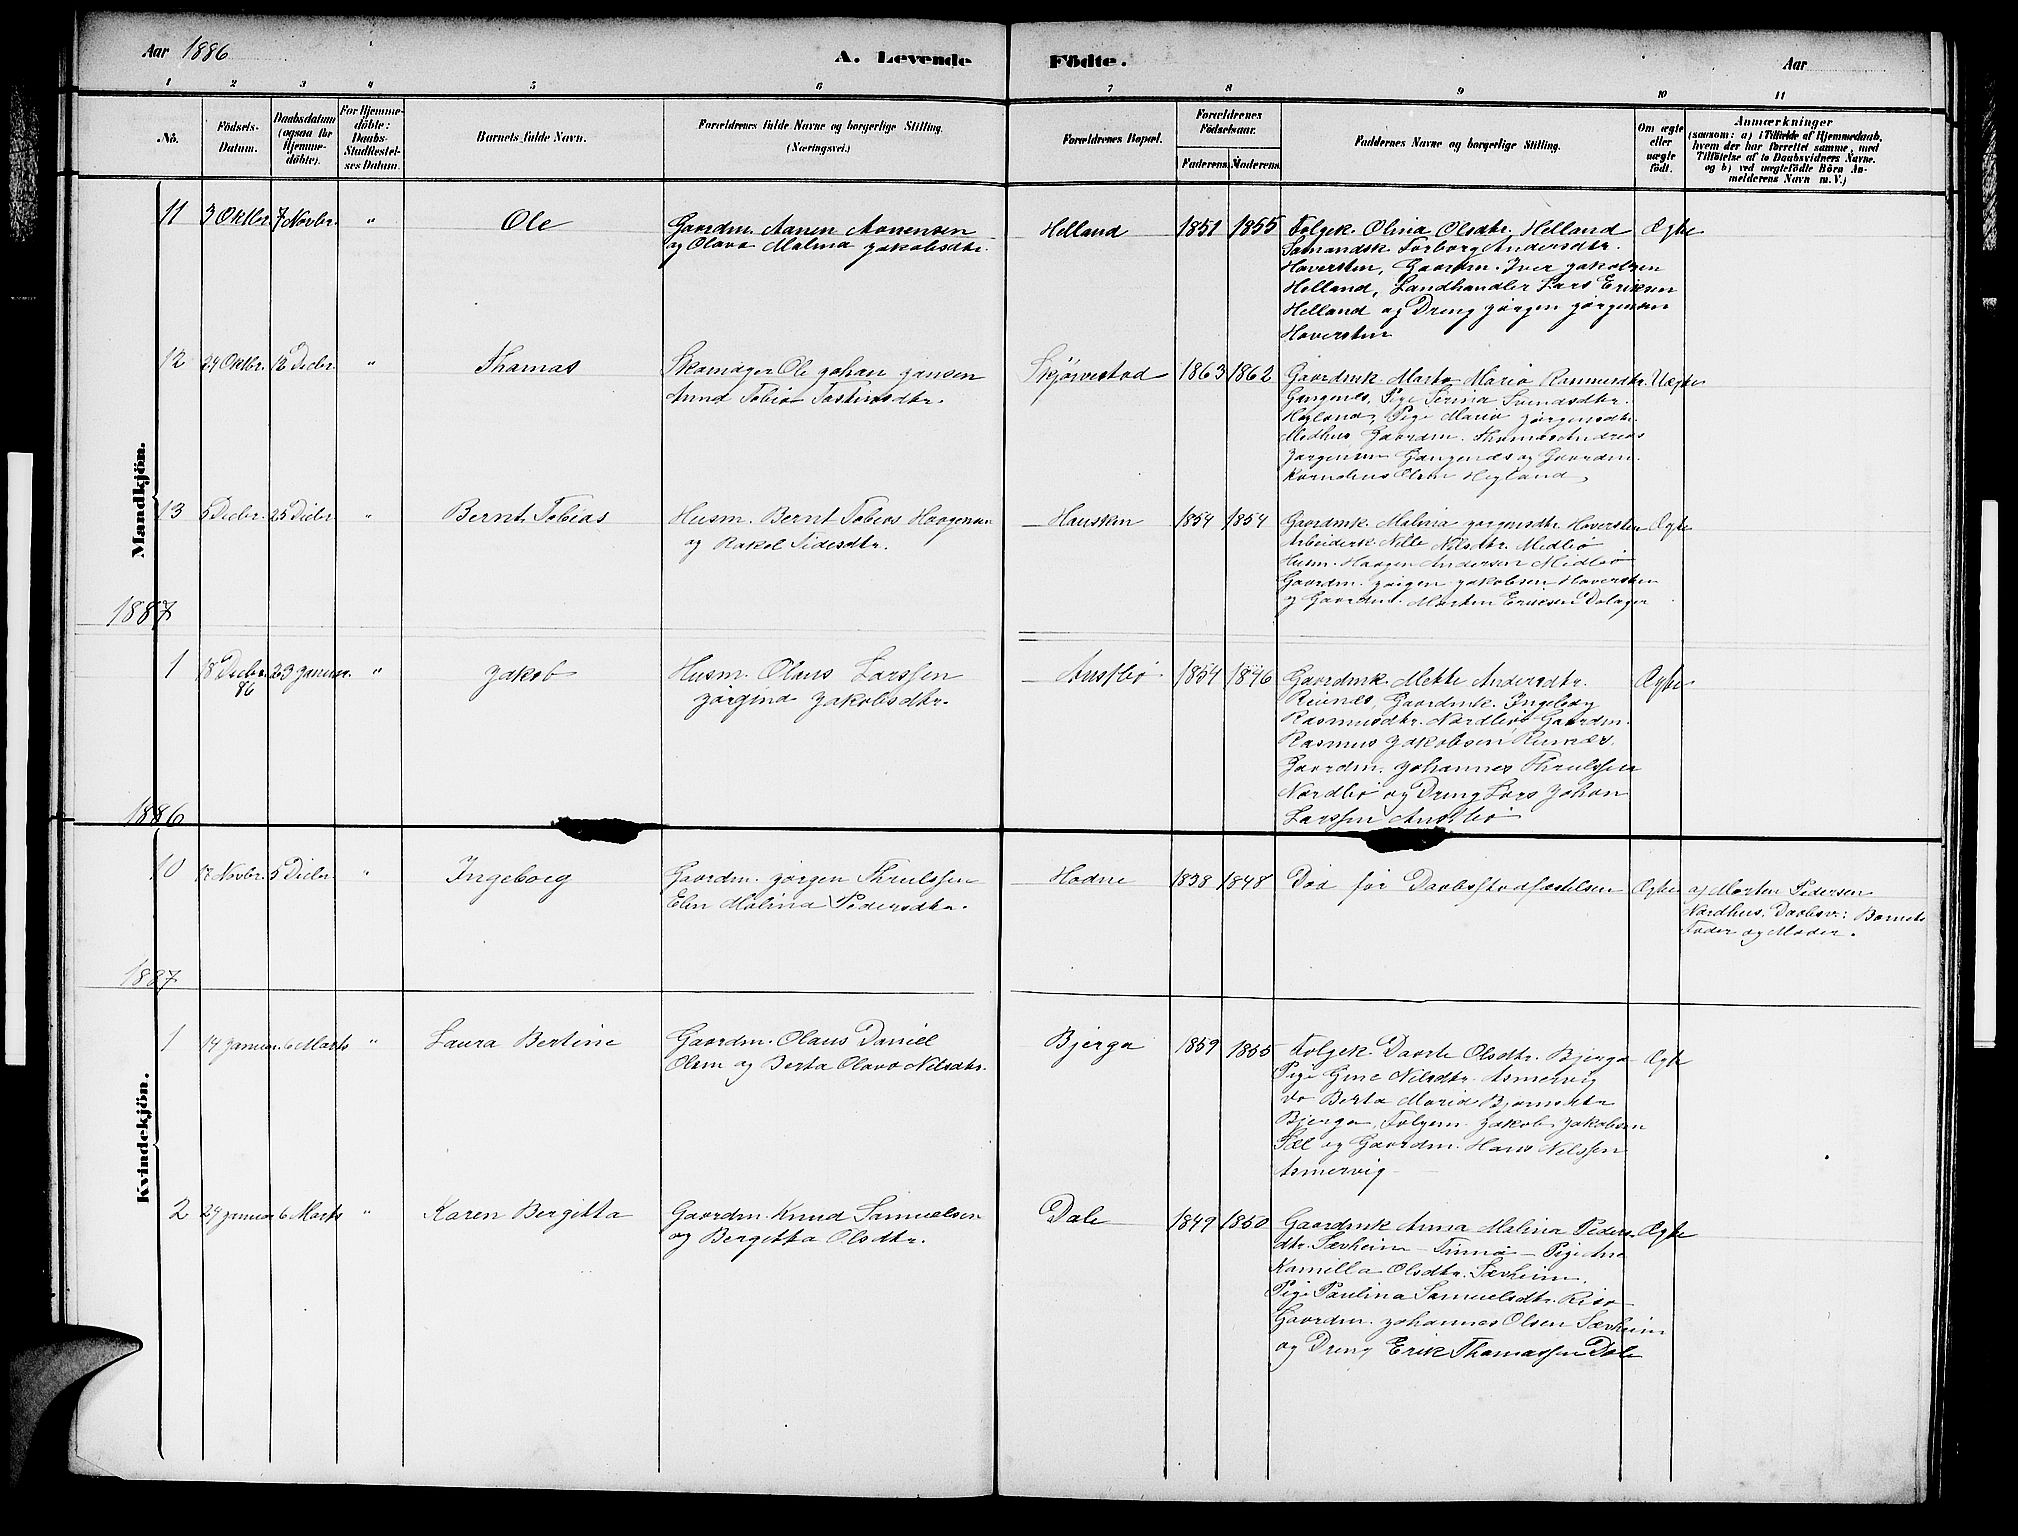 Aar 1886
A. Levende Födte.
Aar
1 2 3 4 5 6 7 8 9 10 11
No.
Födsels-Datum.
Daabsdatum (ogsaa for Hjemme-döbte).
For Hjemme-döbte: Daabs-Stadfæstel-ses Datum.
Barnets fulde Navn.
Forældrenes fulde Navne og borgerlige Stilling. (Næringsvei.)
Forældrenes Bopæl.
Forældrenes Födselsaar.
Faderens. Moderens.
Faddernes Navne og borgerlige Stilling.
Om ægte eller uægte födt.
Anmærkninger
(saasom: a) i Tilfælde af Hjemmedaab, hvem der har forrettet samme, med Tilföielse af to Daabsvidners Navne. og b) ved uægtefödte Börn Anmelderens Navn m. V.)
Mandkjön.
11 3 Oktbr. 7 Novbr. " Ole
Gaardm. Aanen Aanensen
og Olava Malina Jakobsdtr.
Helland 1851 1855
Folgek. Olina Olsdtr. Helland
Sømandsk. Torborg Andersdtr.
Haversten, Gaardm. Iver Jakobsen
Helland, Landhandler Lars Eriksen
Helland og Dreng Jörgen Jörgensen
Haversten
Ægte
12 24 Oktbr. 12 Decbr. " Thomas
Skomager Ole Johan Jansen
Anna Tobia Tostensdtr.
Skjørvestad 1863 1862
Gaardmk. Marta Maria Rasmusdtr.
Gangenes, Pige Serina Svendsdtr.
Høgland, Pige Maria Jörgensdtr.
Medhus, Gaardm. Thomas Andreas
Jørgensen Gangenæs og Gaardm.
Kornelius Olsen Høgland,
Uægte
13 5 Decbr. 25 Decbr. " Bernt Tobias
Husm. Bernt Tobias Haagensen
og Rakel Pedersdtr.
Hausken 1854 1854
Gaardmk. Malina Jørgensdtr. Haversten
Arbeiderk. Nille Nilsdtr. Medbø
Husm. Haagen Andersen Midbø
Gaardm. Jørgen Jakobsen Haversten
og Gaardm. Morten Eriksen Dalager
Ægte
1887
1 18 Decbr. 86 23 Januar. " Jakob
Husm. Olaus Larssen
Jørgina Jakobsdtr.
Austbø 1854 1846
Gaardmk. Mette Andersdtr.
Reinæs, Gaardmk. Ingeborg
Rasmusdtr. Nordbø Gaardm.
Rasmus Jakobsen Reinæs.
Gaardm. Johannes Thrulssen
Nordbø og Dreng Lars Johan
Larssen Austbø
Ægte
1886
Kvindekjön.
10 17 Novbr. 5 Decbr. " Ingeborg
Gaardm. Jørgen Thrulssen
Elen Malina Pedersdtr.
Hodne 1838 1848
Död før Daabsstadfæstelsen
Ægte
af Morten Pedersen
Nordhus, Daabsv.: Barnets
Fader og Moder.
1887
1 14 Januar. 6 Marts " Laura Bertine
Gaardm. Olaus Daniel
Olsen og Berta Olava Nilsdtr.
Bjerga 1859 1855
Folgek. Daarte Olsdtr. Bjerga
Pige Gine Nilsdtr. Asmervig
do Berta Maria Bjørnsdtr.
Bjerga, Folgem. Jakob Jakobsen
Sel og Gaardm. Hans Nilssen
Asmervig
Ægte
2 24 Januar 6 Marts " Karen Bergitta
Gaardm. Knud Samuelsen
og Bergitta Olsdtr.
Dale 1849 1850
Gaardmk Anna Malina Peders-
dtr. Sævheim - Finnø - Pige Ane
Kamilla Olsdtr. Sævheim.
Pige Paulina Samuelsdtr. Risa
Gaardm. Johannes Olsen Sævheim
og Dreng Erik Thomassen Dale
Ægte